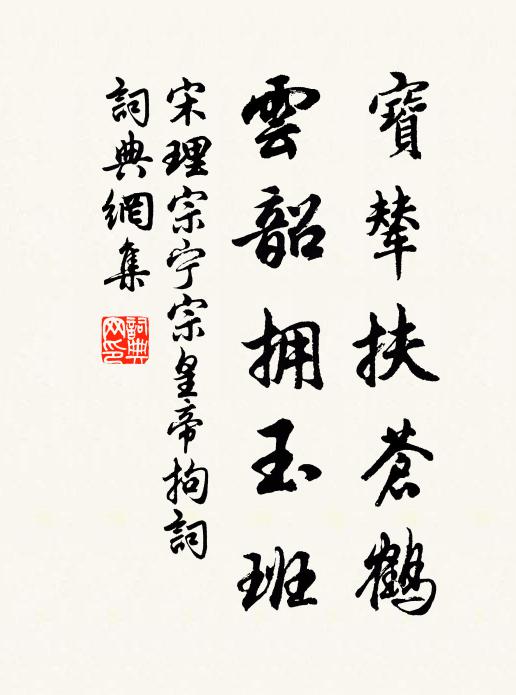 寶輦扶蒼鶴
雲韶拥玉班
宋理宗宁宗皇帝拘詞
詞典網集
詞典
网印